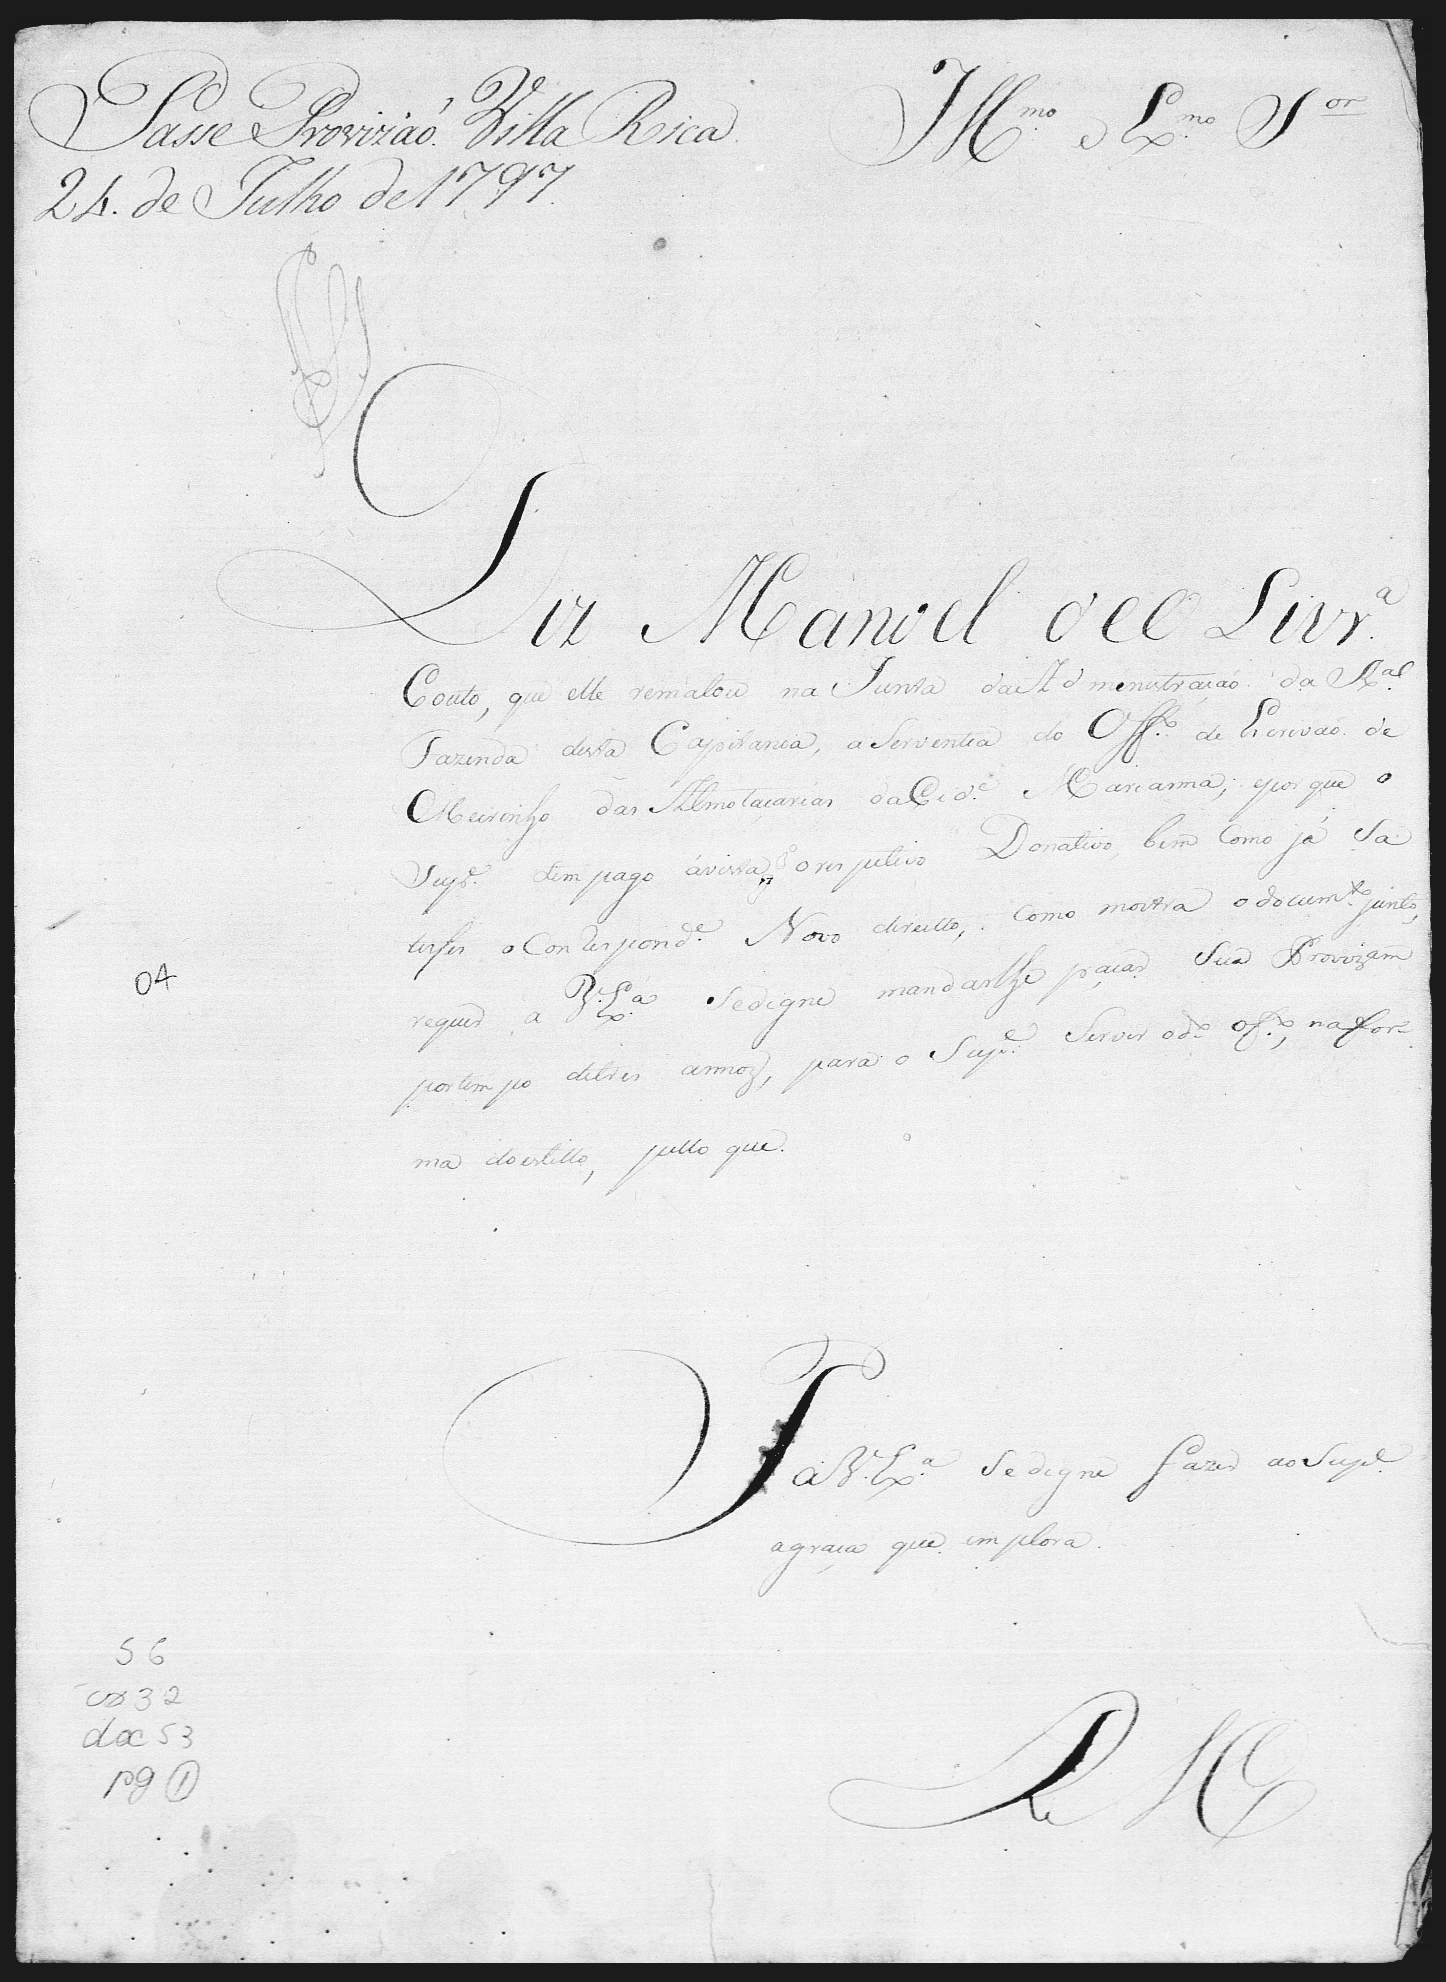 Passe Provizaó. Villa Rica
24. de Julho de 1797.
Ill.mo e Ex.mo S.or
Diz Manoel de Olivr.a
Couto, que elle rematou na Junta da Admenistraçaó da R.al
Fazenda desta Capitania, a Serventia do Off.o de Escrivaó de
Meirinho das Almotaçarias da Cid.e Marianna; eporque o
Sup.e tem pago ávista o respetivo Donativo, bem Como já Sa
tisfes o Conrespond.e Novo direitto, Como mostra o docum.to junto,
requer a V. Ex.a Sedigne mandarlhe paçar Sua Provizam
portempo detres annos, para o Sup.e Servir o d.o off.o, na for
ma doestillo, pello que.
P a V. Ex.a Sedigne fazer ao Sup.e
agraça que implora.
R M
04
56
cx 32
doc 53
pg 1